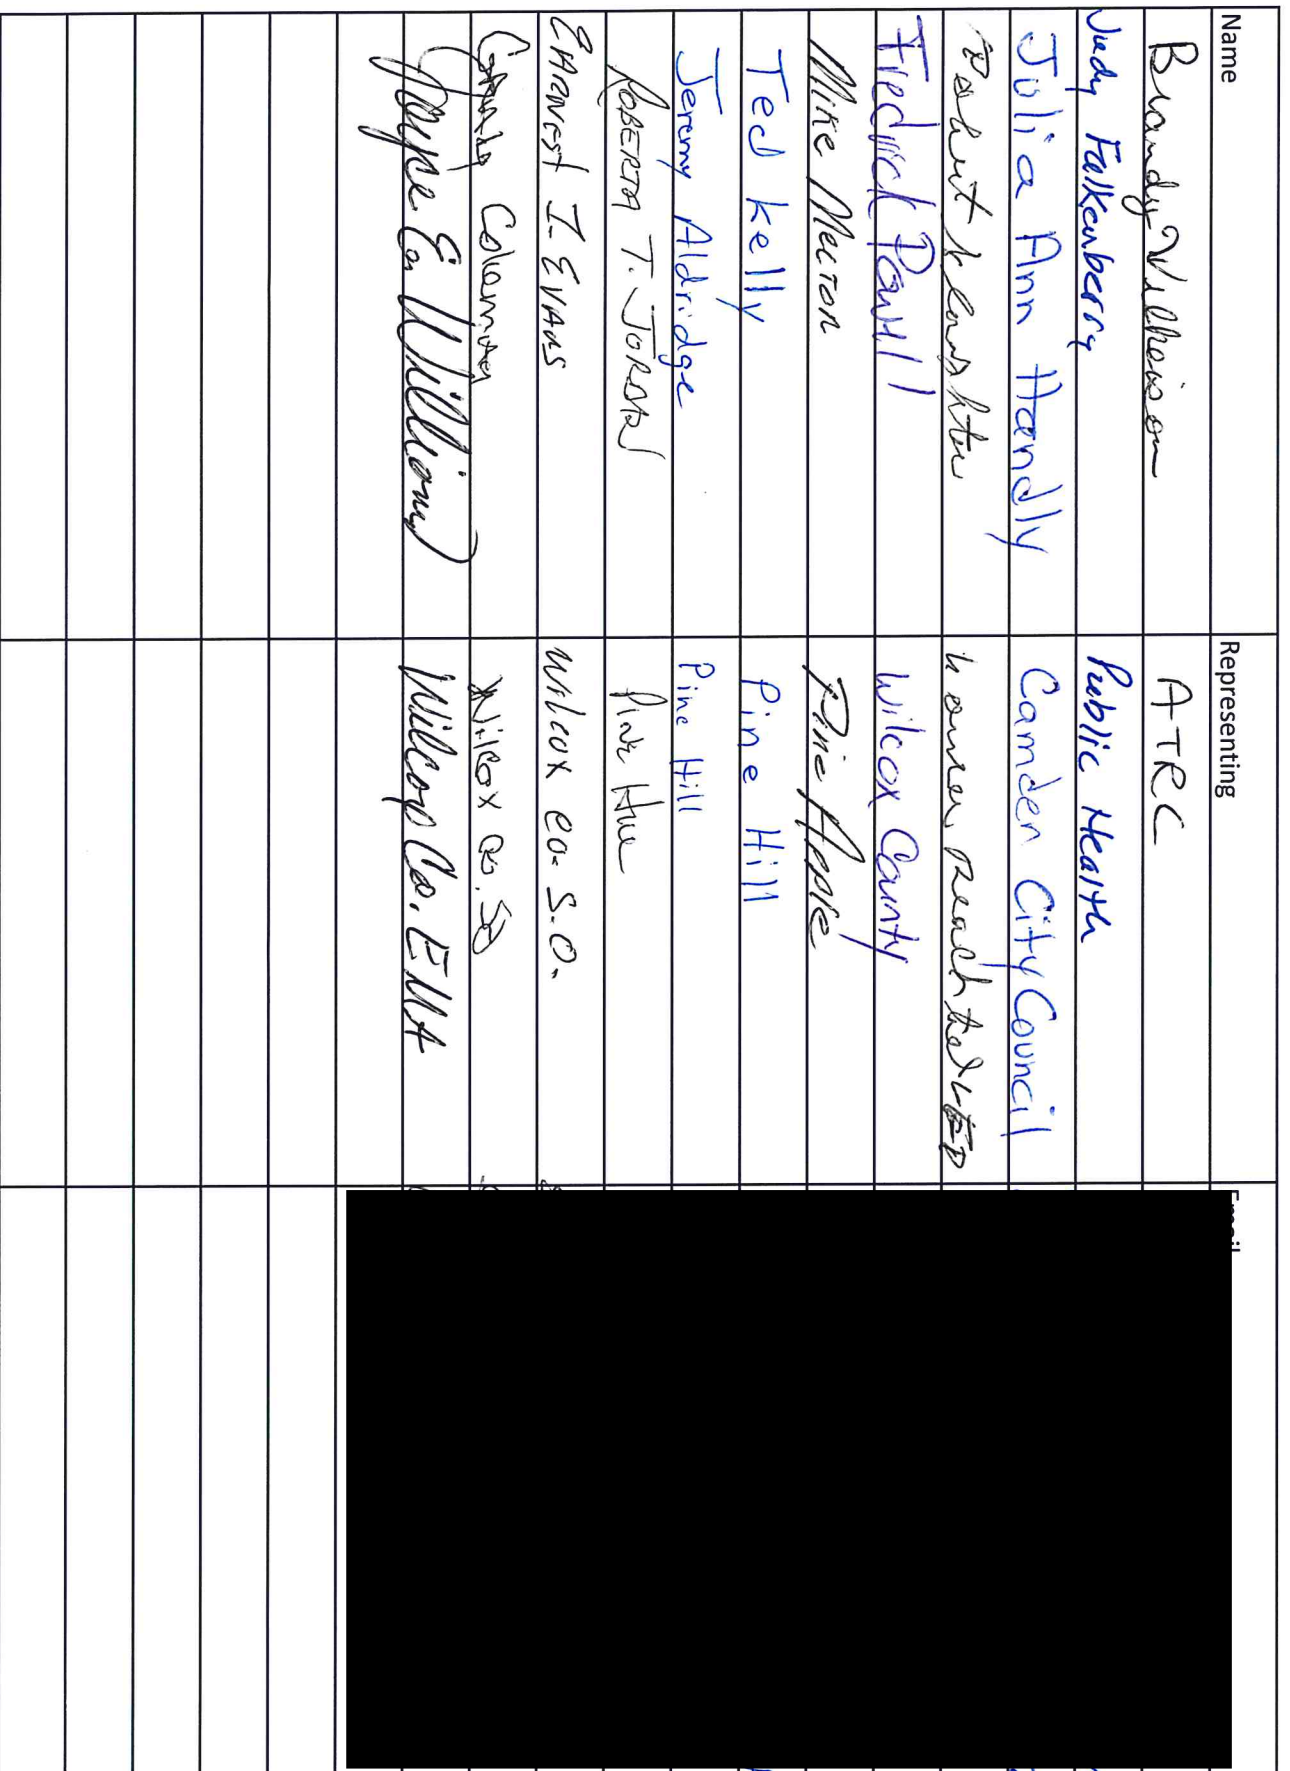 Name Representing Email
Brandy Wilkerson ATRC
Judy Falkenberry Public Health
Julia Ann Handly Camden City Council
Robert Slaughter
Fredrick Powell Wilcox County
Mike Melton Pine Apple
Ted Kelly Pine Hill
Jeremy Aldridge Pine Hill
ROBERTA T. JORDAN Pine Hill
EARNEST I. EVANS Wilcox Co. S.O.
Coleman Wilcox Co. SO
Joyce E. Williams Wilcox Co. EMA